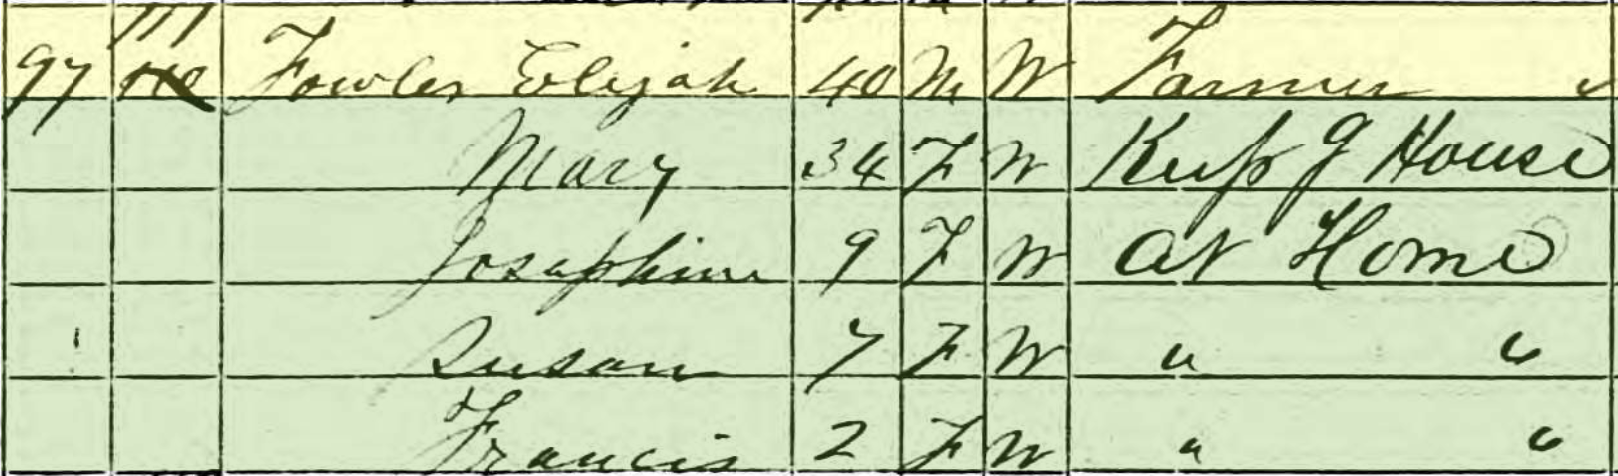 111
97 Fowler Elijah 40 M W Farmer
Mary 34 F W Keep g House
Josephine 9 F W at Home
Susan 7 F W " "
Francis 2 F W " "